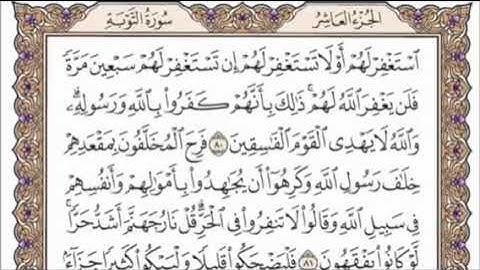 الجزء العاشر
سورة التوبة
ٱسۡتَغۡفِرۡ لَهُمۡ أَوۡ لَا تَسۡتَغۡفِرۡ لَهُمۡ إِن تَسۡتَغۡفِرۡ لَهُمۡ سَبۡعِينَ مَرَّةٗ
فَلَن يَغۡفِرَ ٱللَّهُ لَهُمۡۚ ذَٰلِكَ بِأَنَّهُمۡ كَفَرُواْ بِٱللَّهِ وَرَسُولِهِۦۗ
وَٱللَّهُ لَا يَهۡدِي ٱلۡقَوۡمَ ٱلۡفَٰسِقِينَ ٨٠ فَرِحَ ٱلۡمُخَلَّفُونَ بِمَقۡعَدِهِمۡ
خِلَٰفَ رَسُولِ ٱللَّهِ وَكَرِهُوٓاْ أَن يُجَٰهِدُواْ بِأَمۡوَٰلِهِمۡ وَأَنفُسِهِمۡ
فِي سَبِيلِ ٱللَّهِ وَقَالُواْ لَا تَنفِرُواْ فِي ٱلۡحَرِّۗ قُلۡ نَارُ جَهَنَّمَ أَشَدُّ حَرّٗاۚ
لَّوۡ كَانُواْ يَفۡقَهُونَ ٨١ فَلۡيَضۡحَكُواْ قَلِيلٗا وَلۡيَبۡكُواْ كَثِيرٗا جَزَآءَۢ